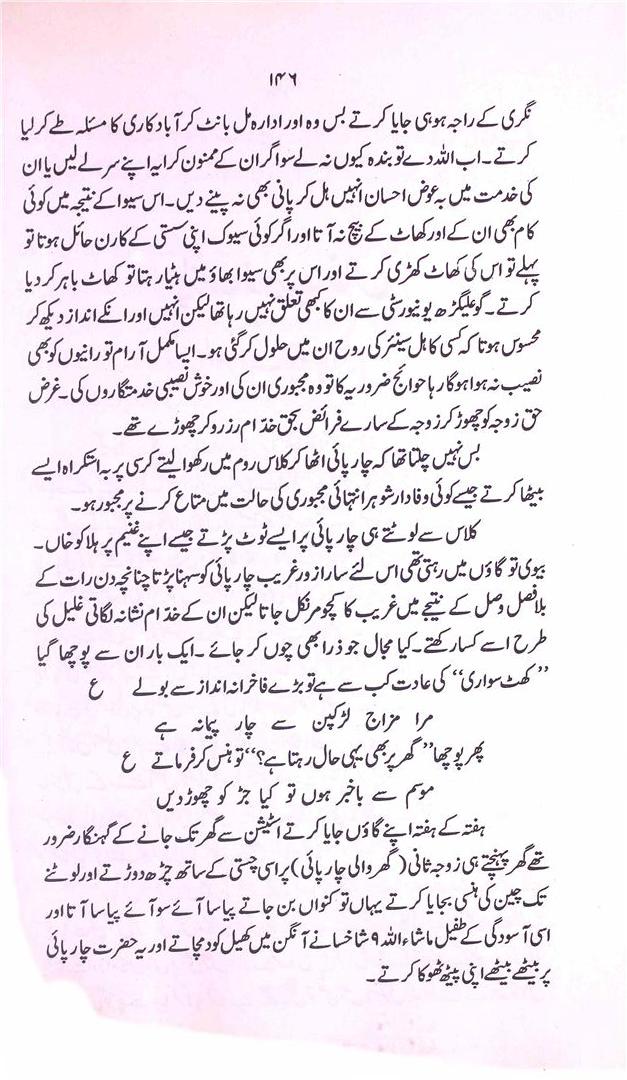 ۱۴۶
نگری کے راجہ ہو ہی جایا کرتے بس وہ اور ادارہ مل بانٹ کر آباد کاری کا مسئلہ طے کر لیا
کرتے۔ اب اللہ دے تو بندہ کیوں نہ لے سو اگر ان کے ممنون کرایہ اپنے سر لے لیں یا ان
کی خدمت میں بہ عوض احسان انہیں ہل کر پانی بھی نہ پینے دیں۔ اس سیوا کے نتیجہ میں کوئی
کام بھی ان کے اور کھاٹ کے بیچ نہ آتا اور اگر کوئی سیوک اپنی سستی کے کارن حائل ہوتا تو
پہلے تو اس کی کھاٹ کھڑی کرتے اور اس پر بھی سیوا بھاؤ میں ہٹیا رہتا تو کھاٹ باہر کر دیا
کرتے۔ گو علیگڑھ یونیورسٹی سے ان کا کبھی تعلق نہیں رہا تھا لیکن انہیں اور انکے انداز دیکھ کر
محسوس ہوتا کہ کسی کاہل سینئر کی روح ان میں حلول کر گئی ہو۔ ایسا مکمل آرام تو رانیوں کو بھی
نصیب نہ ہوا ہو گا رہا حوائج ضروریہ کا تو وہ مجبوری ان کی اور خوش نصیبی خدمتگاروں کی۔ غرض
حق زوجہ کو چھوڑ کر زوجہ کے سارے فرائض بحق خدّام رزرو کر چھوڑے تھے۔
بس نہیں چلتا تھا کہ چارپائی اٹھا کر کلاس روم میں رکھوا لیتے کرسی پر بہ استکراہ ایسے
بیٹھا کرتے جیسے کوئی وفادار شوہر انتہائی مجبوری کی حالت میں متاع کرنے پر مجبور ہو۔
کلاس سے لوٹتے ہی چارپائی پر ایسے ٹوٹ پڑتے جیسے اپنے غنیم پر ہلاکو خاں۔
بیوی تو گاؤں میں رہتی تھی اس لئے سارا زور غریب چارپائی کو سہنا پڑتا چنانچہ دن رات کے
بلا فصل وصل کے نتیجے میں غریب کا کچومر نکل جاتا لیکن ان کے خدّام نشانہ لگاتی غلیل کی
طرح اسے کسا رکھتے۔ کیا مجال جو ذرا بھی چوں کر جائے۔ ایک بار ان سے پوچھا گیا
”کھٹ سواری“ کی عادت کب سے ہے تو بڑے فاخرانہ انداز سے بولے ع
مرا مزاج لڑکپن سے چار پیمانہ ہے
پھر پوچھا ”گھر پر بھی یہی حال رہتا ہے؟“ تو ہنس کر فرماتے ع
موسم سے باخبر ہوں تو کیا جڑ کو چھوڑ دیں
ہفتہ کے ہفتہ اپنے گاؤں جایا کرتے اسٹیشن سے گھر تک جانے کے گہنگار ضرور
تھے گھر پہنچتے ہی زوجہ ثانی (گھر والی چارپائی) پر اسی چستی کے ساتھ چڑھ دوڑتے اور لوٹنے
تک چین کی ہنسی بجایا کرتے یہاں تو کنواں بن جاتے پیاسا آئے سو آئے پیاسا آتا اور
اسی آسودگی کے طفیل ماشاء اللہ ۹ شاخسانے آنگن میں کھیل کود مچاتے اور یہ حضرت چارپائی
پر بیٹھے بیٹھے اپنی پیٹھ ٹھوکا کرتے۔